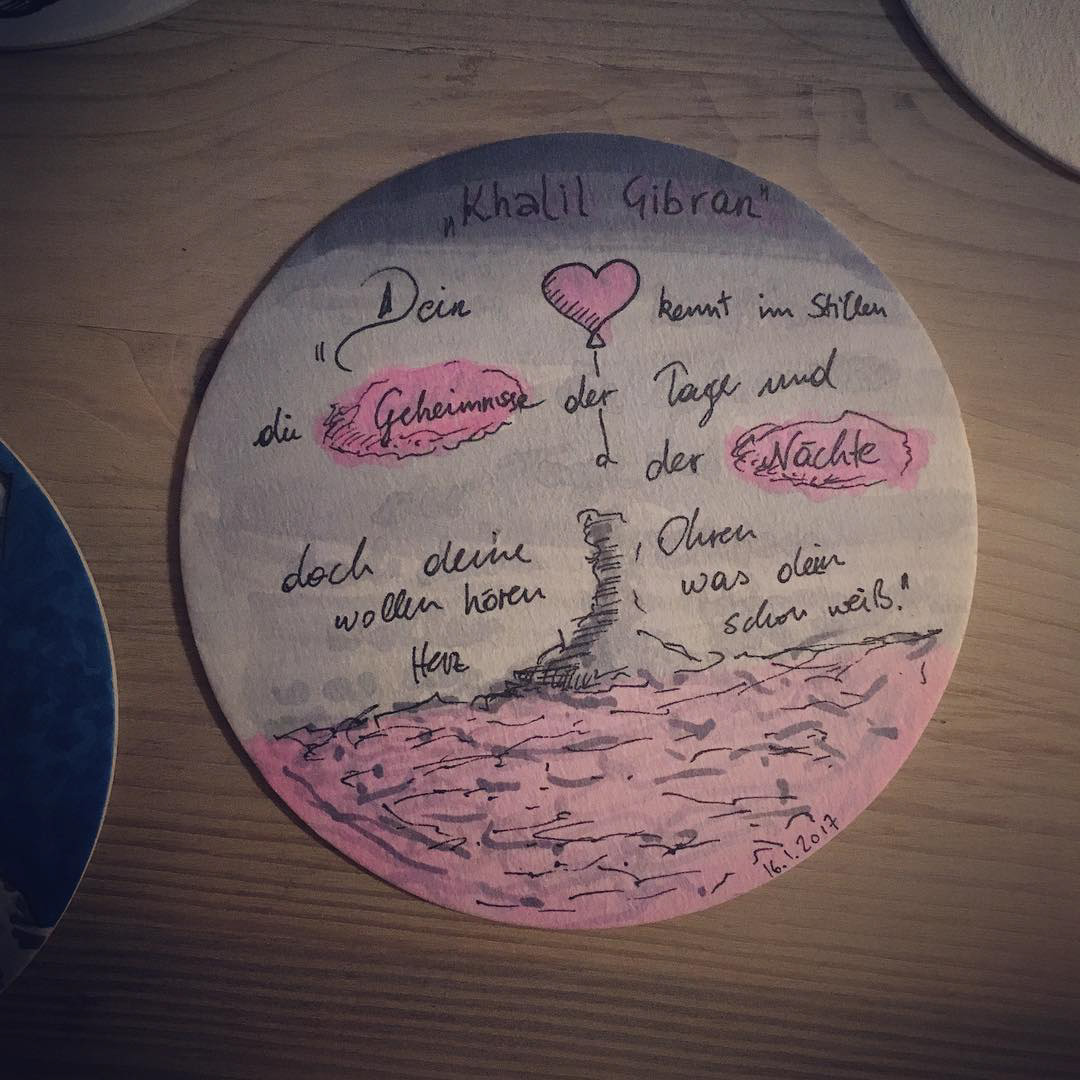 „Khalil Gibran"
"Dein kennt im Stillen
die Geheimnisse der Tage und
der Nächte
doch deine Ohren
wollen hören was dein
Herz schon weiß."
16.1.2017